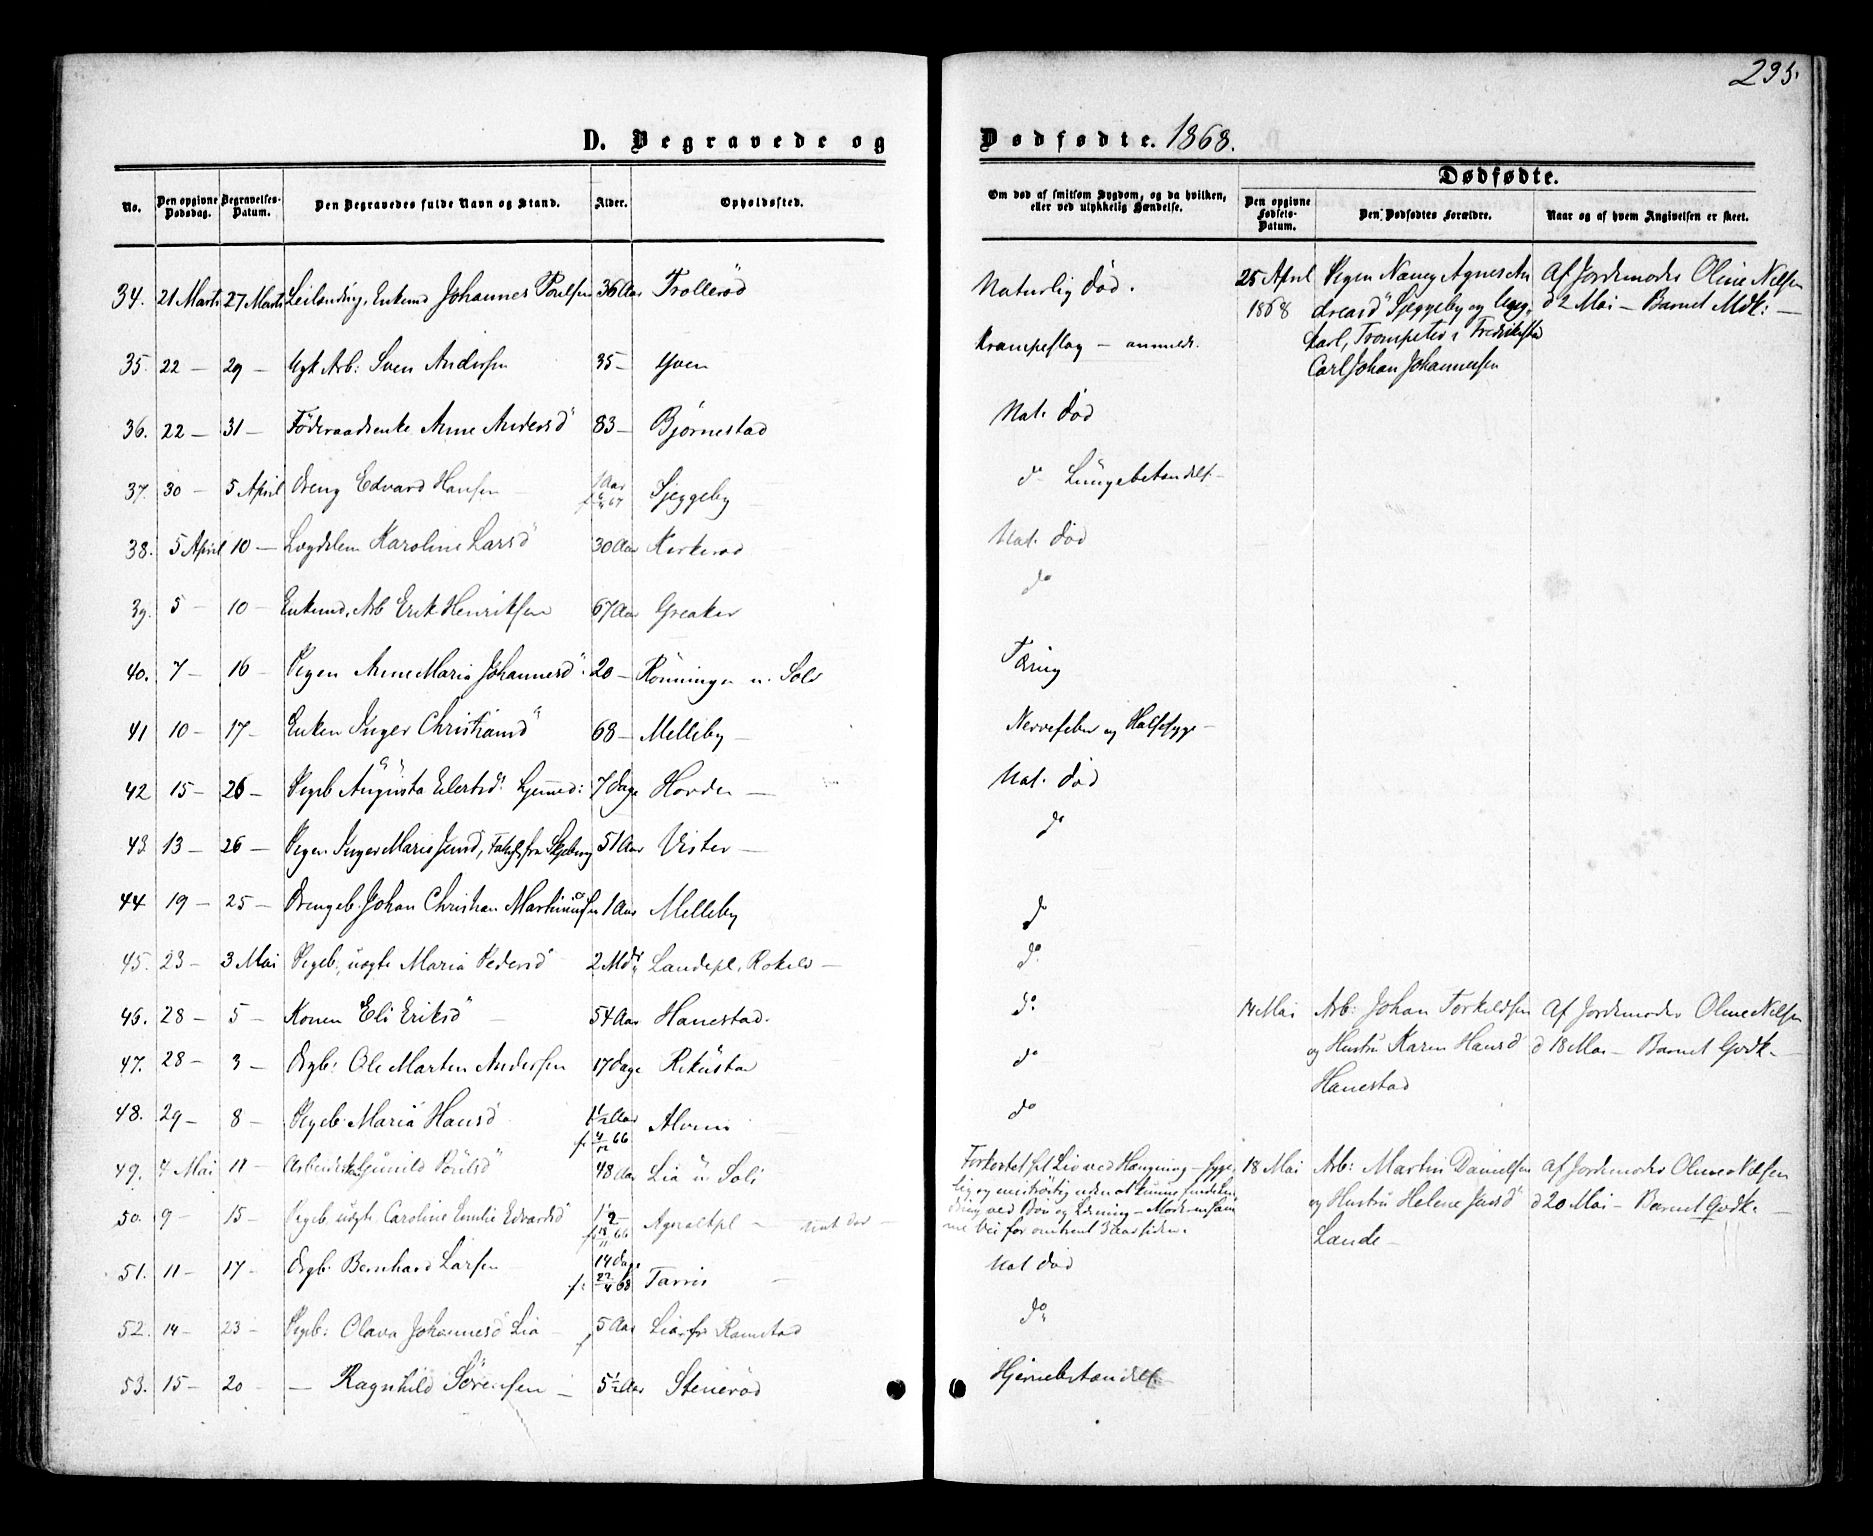 235.
D. Begravede og
Dødfødte. 1868.
No.
Den opgivne Dødsdag.
Begravelses-Datum.
Den Begravedes fulde Navn og Stand.
Alder.
Opholdssted.
Om død af smitsom Sygdom, og da hvilken, eller ved ulykkelig Hændelse.
Dødfødte.
Den opgivne Fødsels-Datum.
Den Dødfødtes Forældre.
Naar og af hvem Angivelsen er skeet.
34. 21 Marts 27 Marts Leilænding, Enkemd Johannes Poulsen 36 Aar Trollerød
35. 22 — 29 — Ugk Arb: Sven Andersen 35 — Yven
36. 22 — 31 — Föderaadsenke Anne Andersd 83 — Bjørnestad
37. 30 — 5 April Dreng Edvard Hansen 1 Aar Sjeggeby
38. 5 April 10 — Lægdslem Karoline Larsd 30 Aar Kirkerød
39. 5 — 10 — Enkemd. Arb Erik Henriksen 67 Aar Greaker
40. 7 — 16 — Pigen Anne Maria Johannesd 20 — Rönningen u. Soli
41 10 — 17 — Enken Inger Christiansd 68 — Melleby —
42 15 — 26 — Pigeb Augusta Eilertsd 7 Dage Horden —
43 13 — 26 — Pigen Inger Marie Jensd, Fattigl. fra Skjeberg 51 Aar Vister —
44 19 — 25 — Drengeb. Johan Christian Martinusen 1 Aar Melleby
45. 23 — 3 Mai Pigeb. uægte Maria Pedersd 2 Mdr Landepl. —
46. 28 — 5 — Konen Eli Eriksd 54 Aar Hanestad.
47. 28 — 3 — Drgb: Ole Marten Andersen 17 Dage Rikustad
48. 29 — 8 — Pigeb Maria Hansd 1½ Aar Alvim
f. 66
49. 4 Mai 11 — Gunild Poulsd 48 Aar Lia u Soli
50. 9 — 15 — Pigeb uægte Caroline Emilie Edvardsd Agnaltpl —
51. 11 — 17 — Drgb. Bernhard Larsen 14 Dage Tarris —
f: 22/4 68
52. 14 — 23 — Pigeb: Olava Johannesd Lia — 5 Aar Lia fr Ramstad
53. 15 — 20 — — Ragnhild Sörensen — 5½ Aar Stenerød
Naturlig Död.
Krampeslag — anmeldt.
Nat. Död
do Lungebetændelse —
Nat. Död
do
Tæring
Nervefeber og Halssyge —
Nat. Död
do
do
do.
do.
do
do
Forkortet sit Liv ved Hængning —
Nat Död
do
Hjernebetændelse
25 April 1868
Pigen Nancy Agnes An
dreasd Sjeggeby og
Karl, Trompeter i Fredrikstad
Carl Johan Johannesen
Af Jordemoder Oline Nilsen
d 2 Mai — Barnet Mdk: —
14 Mai
Arb: Johan Torkildsen
og Hustru Karen Hansd
Hanestad
Af Jordemoder Oline Nilsen
d 18 Mai — Barnet Qvdk. —
18 Mai
Arb: Martin Danielsen
og Hustru Helene Jensd
Lande —
Af Jordemoder Oline Nilsen
d 20 Mai — Barnet Qvdk. —